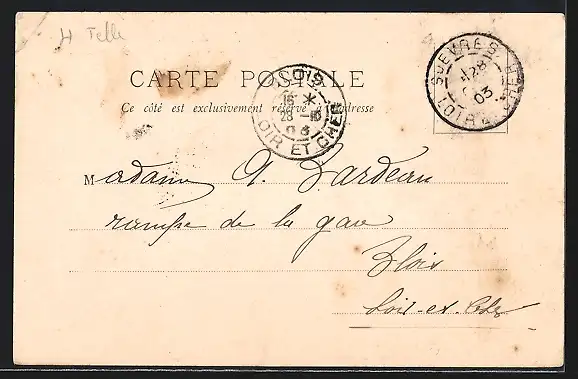 H Telle
CARTE POSTALE
Ce côté est exclusivement réservé à l'adresse
SUEVRES
28
03
LOIR & CHER
BLOIS
16 *
28 -10
03
LOIR ET CHER
Madame A. Dardeau
rampe de la gare
Blois
Loir-et-Cher